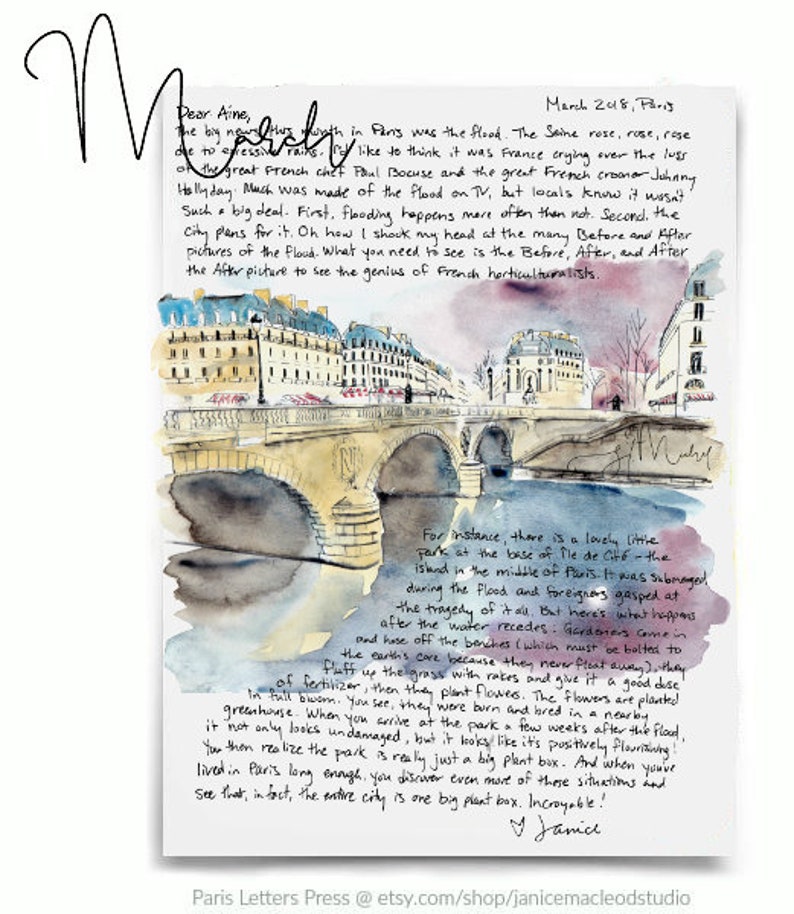 March
March 2018, Paris
Dear Aine,
The big news this month in Paris was the flood. The Seine rose, rose, rose
due to excessive rains. I'd like to think it was France crying over the loss
of the great French chef Paul Bocuse and the great French crooner Johnny
Hallyday. Much was made of the flood on TV, but locals know it wasn't
such a big deal. First, flooding happens more often than not. Second, the
city plans for it. Oh how I shook my head at the many Before and After
pictures of the flood. What you need to see is the Before, After, and After
the After picture to see the genius of French horticulturalists.
N
For instance, there is a lovely little
park at the base of Île de Cité - the
island in the middle of Paris. It was submerged
during the flood and foreigners gasped at
the tragedy of it all. But here's what happens
after the water recedes: Gardeners come in
and hose off the benches (which must be bolted to
the earth's core because they never float away), they
fluff up the grass with rakes and give it a good dose
of fertilizer, then they plant flowers. The flowers are planted
in full bloom. You see, they were born and bred in a nearby
greenhouse. When you arrive at the park a few weeks after the flood,
it not only looks undamaged, but it looks like it's positively flourishing!
You then realize the park is really just a big plant box. And when you've
lived in Paris long enough, you discover even more of these situations and
see that, in fact, the entire city is one big plant box. Incroyable!
♡ Janice
Paris Letters Press @ etsy.com/shop/janicemacleodstudio